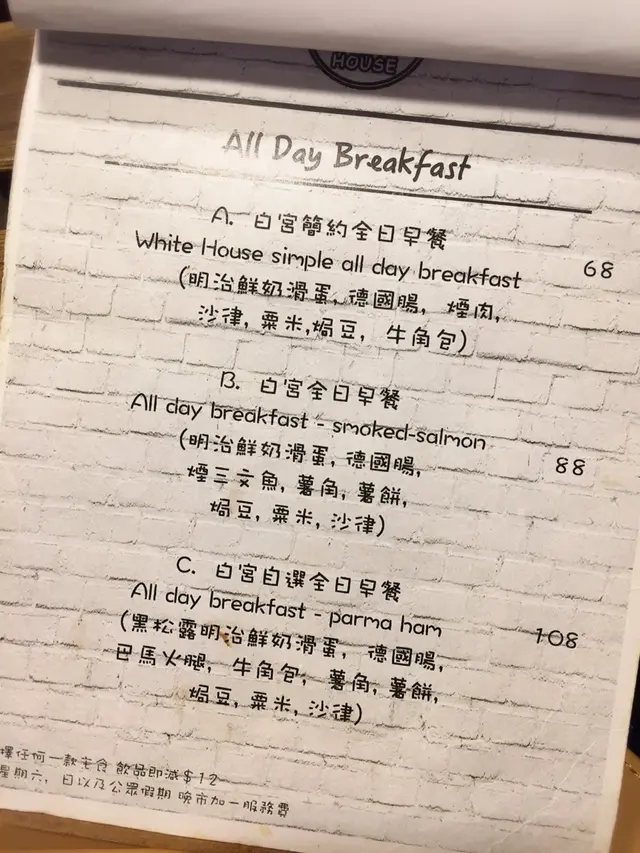 HOUSE
All Day Breakfast
A. 白宮簡約全日早餐
White House simple all day breakfast 68
(明治鮮奶滑蛋, 德國腸, 煙肉,
沙律, 粟米,焗豆, 牛角包)
B. 白宮全日早餐
All day breakfast - smoked-salmon 88
(明治鮮奶滑蛋, 德國腸,
煙三文魚, 薯角, 薯餅,
焗豆, 粟米, 沙律)
C. 白宮自選全日早餐
All day breakfast - parma ham 108
(黑松露明治鮮奶滑蛋, 德國腸,
巴馬火腿, 牛角包, 薯角, 薯餅,
焗豆, 粟米, 沙律)
擇任何一款主食 飲品即減$12
星期六, 日以及公眾假期 晚市加一服務費